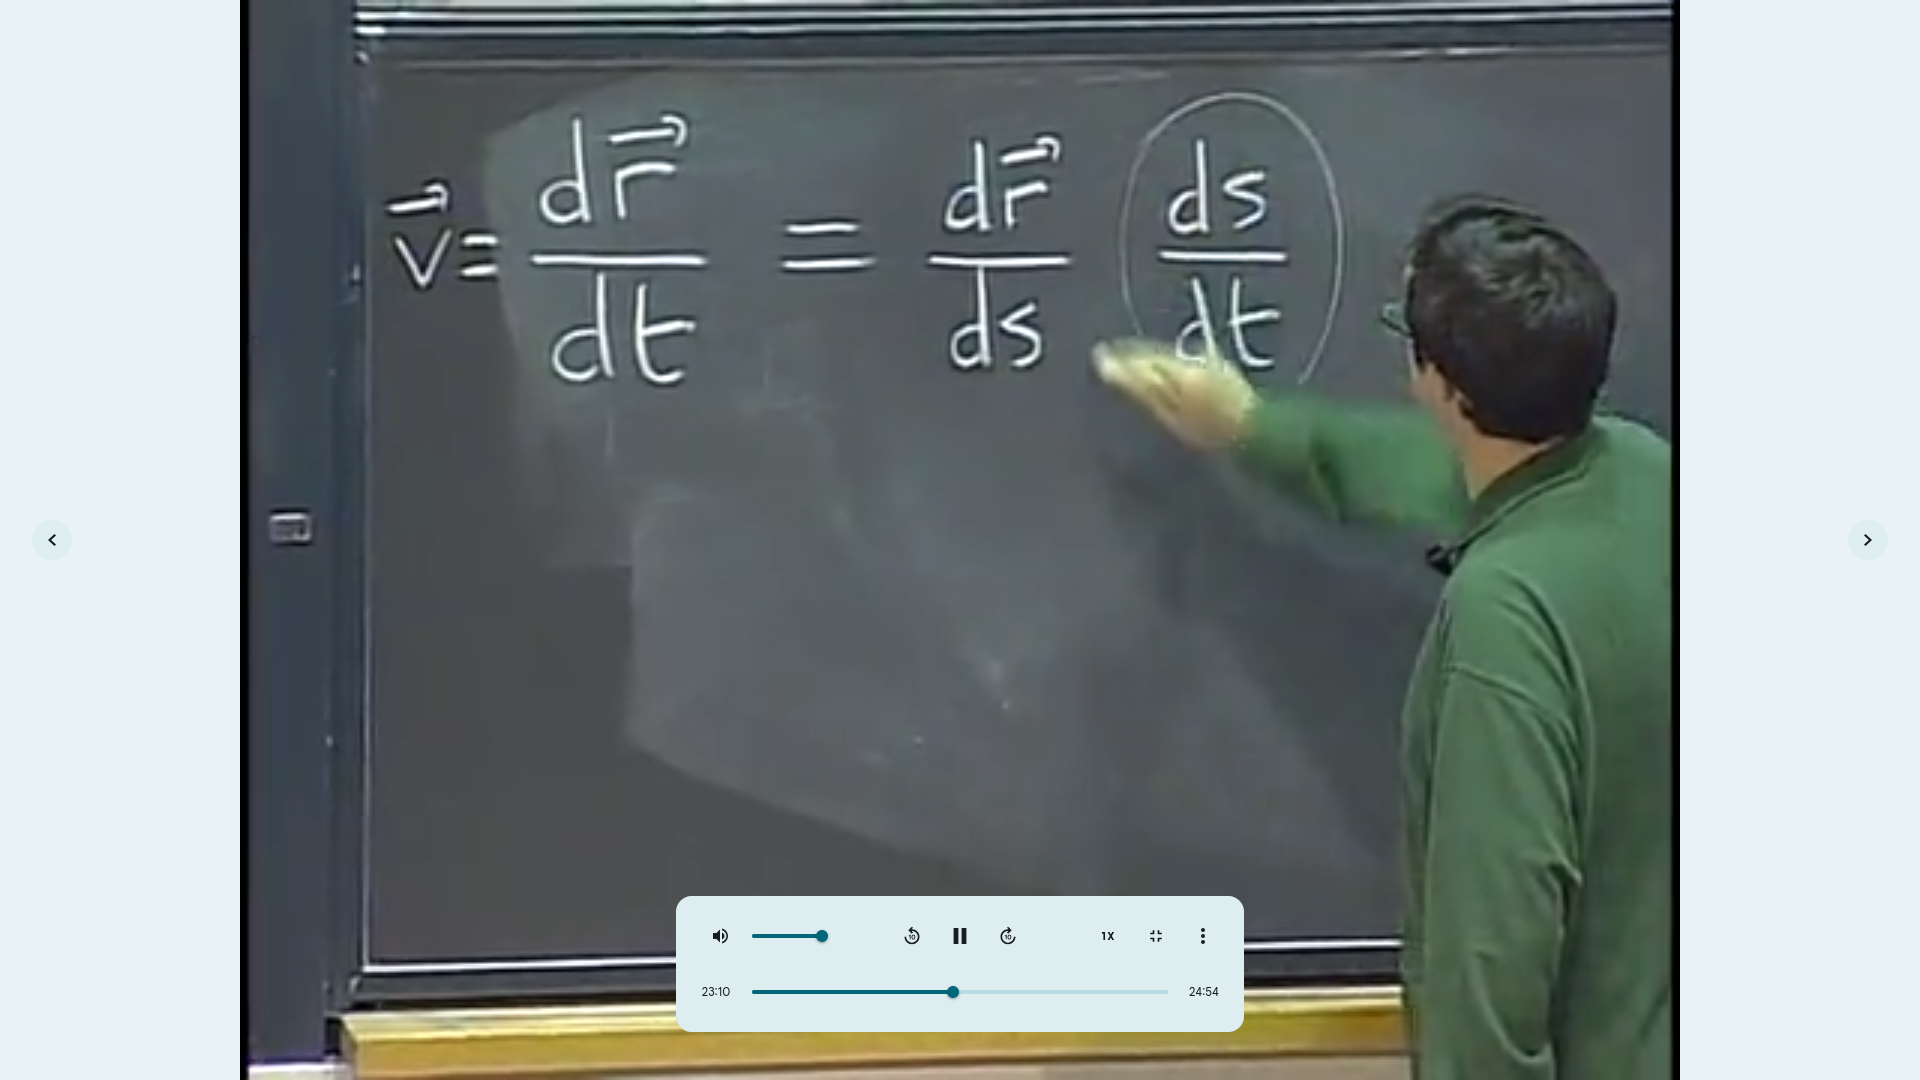 v⃗ = dr⃗/dt = dr⃗/ds ds/dt
10 10 1X
23:10 24:54